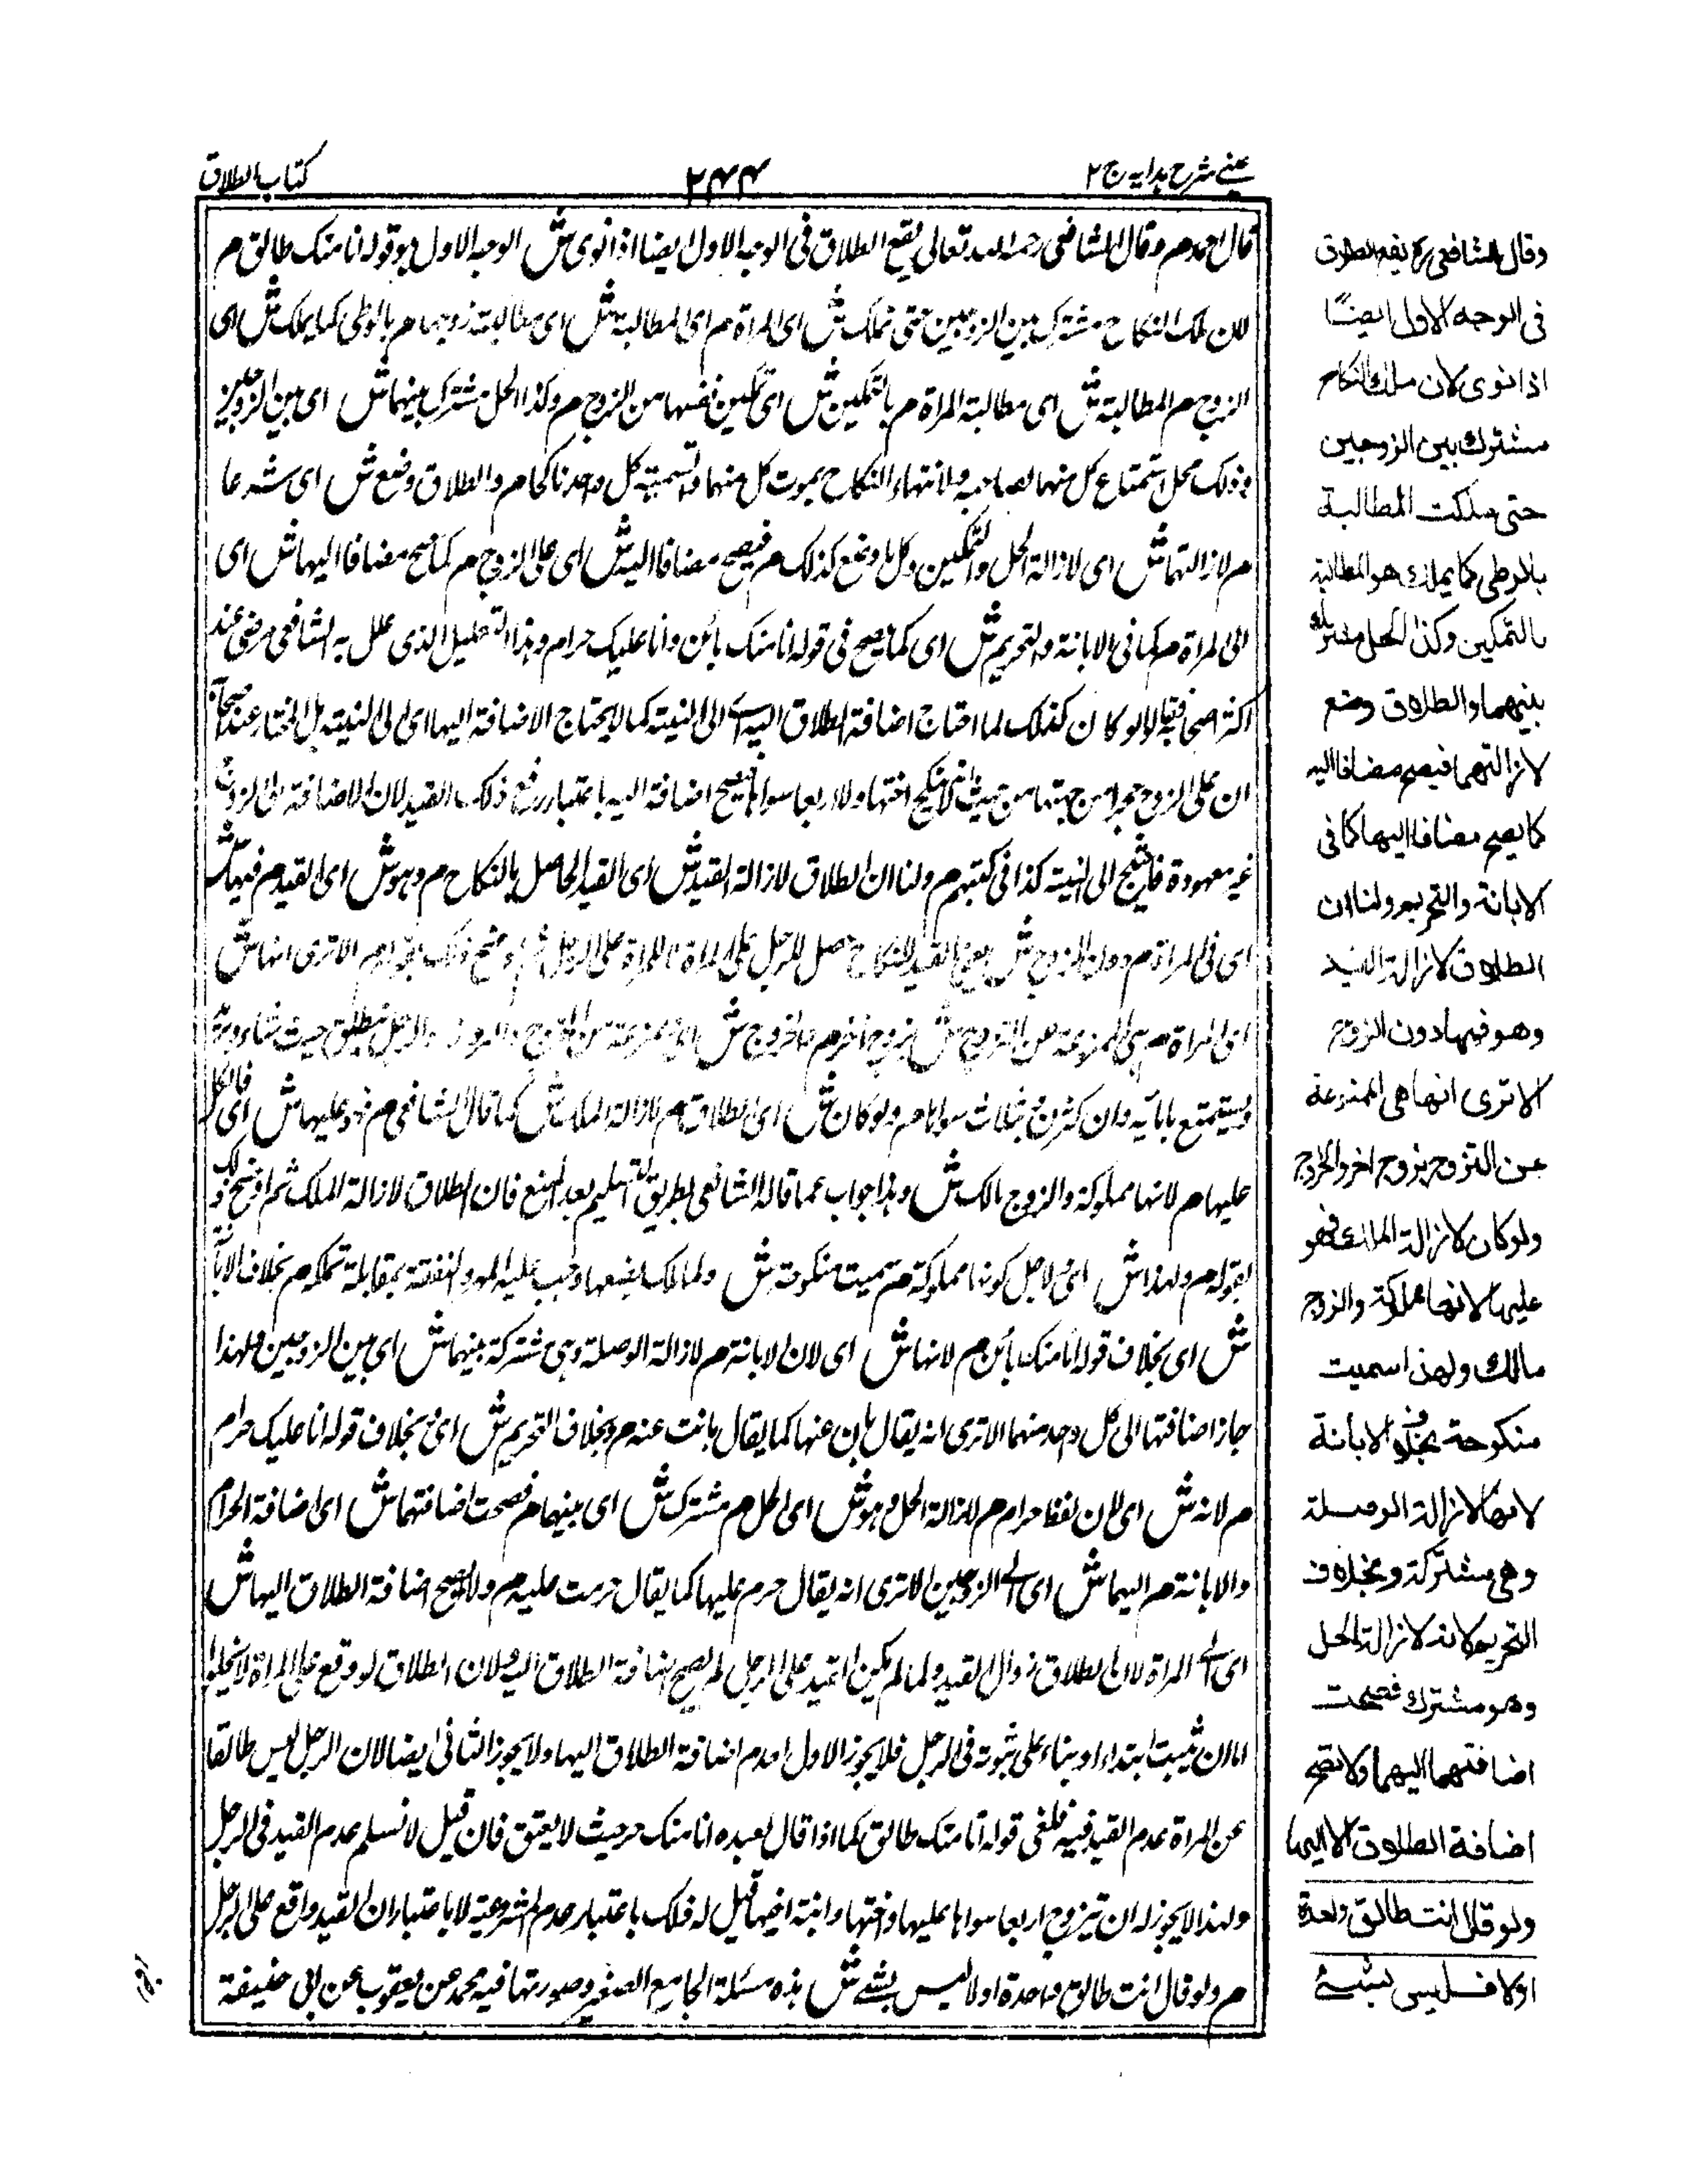 عينے شرح هدايه ج ٢
٢٤٤
كتاب الطلاق
قال احمد م وقال الشافعى رحمه الله تعالى يقع الطلاق فى الوجه الاول ايضا اذا نوى ش الوجه الاول هو قوله انا منك طالق م
لان ملك النكاح مشترك بين الزوجين حتى تملك ش اى المراة م اى المطالبة ش اى مطالبة زوجها م بالوطى كما يملك ش اى
الزوج م المطالبة ش اى مطالبة المراة م بالتمكين ش اى تمكين نفسها من الزوج م وكذا الحل مشترك بينهما ش اى بين الزوجين
وذلك محل استمتاع كل منهما لصاحبه ولانتهاء النكاح بموت كل منهما وتسمية كل واحد ناكحا م والطلاق وضع ش اى شرعا
م لازالتهما ش اى لازالة الحل والتمكين وكل ما وضع كذلك م فيصح مضافا اليه ش اى على الزوج م كما صح مضافا اليها ش اى
الى المراة م كما فى الابانة والتحريم ش اى كما يصح فى قوله انا منك بائن وانا عليك حرام وهذا التعليل الذى علل به الشافعى رضى عنه
اكثر اصحابنا قالوا لو كان كذلك لما احتاج اضافة الطلاق اليه الى النية كما لا يحتاج الاضافة اليها اى الى النية بل المختار عند
ان على الزوج حجرا من جهتها من حيث لا ينكح اختها ولا اربعا سواها فيصح اضافة اليه باعتبار رفع ذلك القيد لان الاضافة الى الزوج
غير معهودة فاحتيج الى النية كذا فى كتبهم م ولنا ان الطلاق لازالة القيد ش اى القيد الحاصل بالنكاح م وهو ش اى القيد م فيها ش
اى فى المراة م دون الزوج ش يعنى القيد للنكاح حصل للرجل على المراة لا للمراة على الرجل ثم اوضح ذلك بقوله م الا ترى انها ش
اى المراة م هى الممنوعة عن التزوج ش بزوج اخر م والخروج ش اى ممنوعة من الخروج والرجل ينطلق حيث شاء
ويستمتع بامائه وان كثرن وبثلاث سواها م ولو كان ش اى الطلاق م لازالة الملك ش كما قال الشافعى م فهو عليها ش اى
عليها م لانها مملوكة والزوج مالك ش وهذا جواب عما قاله الشافعى بطريق التسليم بعد المنع فان الطلاق لازالة الملك ثم اوضح ذلك
بقوله م ولهذا ش اى لاجل كونها مملوكة م سميت منكوحة ش ولمالك بضعها وجب عليه المهر والنفقة بمقابلة تملكه م بخلاف الابانة
ش اى بخلاف قوله انا منك بائن م لانها ش اى لان الابانة م لازالة الوصلة وهى مشتركة بينهما ش اى بين الزوجين ولهذا
جاز اضافتها الى كل واحد منهما الا ترى انه يقال بان عنها كما يقال بانت عنه م وبخلاف التحريم ش اى بخلاف قوله انا عليك حرام
م لانه ش اى لان لفظ حرام م لازالة الحل وهو ش اى الحل م مشترك ش اى بينهما م فصحت اضافتهما ش اى اضافة الحرام
والابانة م اليهما ش اى الى الزوجين الا ترى انه يقال حرم عليها كما يقال حرمت عليه م ولا تصح اضافة الطلاق اليها ش
اى الى المراة لان الطلاق زوال القيد ولما لم يكن القيد على الرجل لم يصح اضافة الطلاق اليه ولان الطلاق لو وقع على المراة لا يخلو
اما ان يثبت ابتداء او بناء على ثبوته فى الرجل فلا يجوز الاول لعدم اضافة الطلاق اليها ولا يجوز الثانى ايضا لان الرجل ليس طالقا
عن المراة لعدم القيد فيه فلغى قوله انا منك طالق كما اذا قال لعبده انا منك حر حيث لا يعتق فان قيل لا نسلم عدم القيد فى الرجل
ولهذا لا يجوز له ان يتزوج اربعا سواها عليها واختها وابنة اخيها قيل له ذلك باعتبار عدم المشروعية لا باعتبار ان القيد واقع على الرجل
م ولو قال انت طالق واحدة او لا ليس بشئ ش هذه مسئلة الجامع الصغير وصورتها فيه محمد عن يعقوب عن ابى حنيفة
وقال الشافعى رح يقع الطلاق
فى الوجه الاول ايضًا
اذا نوى لان ملك النكاح
مشترك بين الزوجين
حتى ملكت المطالبة
بالوطى كما يملك هو المطالبة
بالتمكين وكذا الحل مشترك
بينهما والطلاق وضع
لازالتهما فيصح مضافا اليه
كما يصح مضافا اليها كما فى
الابانة والتحريم ولنا ان
الطلاق لازالة القيد
وهو فيها دون الزوج
الا ترى انها هى الممنوعة
عن التزوج بزوج اخر والخروج
ولو كان لازالة الملك فهو
عليها لانها مملوكة والزوج
مالك ولهذا سميت
منكوحة بخلاف الابانة
لانها لازالة الوصلة
وهى مشتركة وبخلاف
التحريم لانه لازالة الحل
وهو مشترك فصحت
اضافتهما اليهما ولا تصح
اضافة الطلاق الا اليها
ولو قال انت طالق واحدة
او لا فليس بشئ